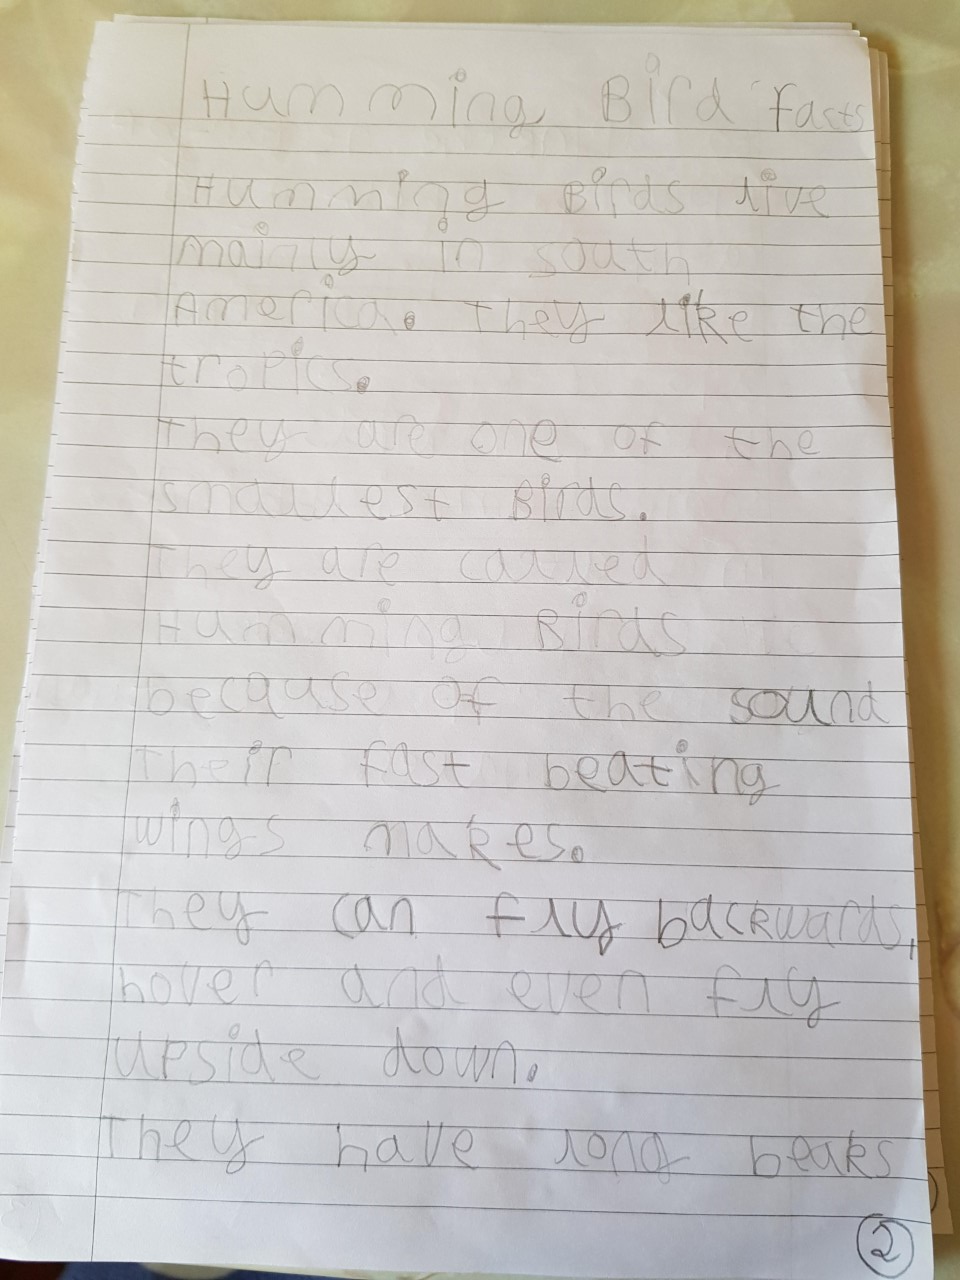 Humming Bird facts
Humming Birds live
mainly in south
America. They like the
tropics.
They are one of the
smallest Birds.
They are called
Humming Birds
because of the sound
Their fast beating
wings makes.
They can fly backwards,
hover and even fly
upside down.
They have long beaks
2